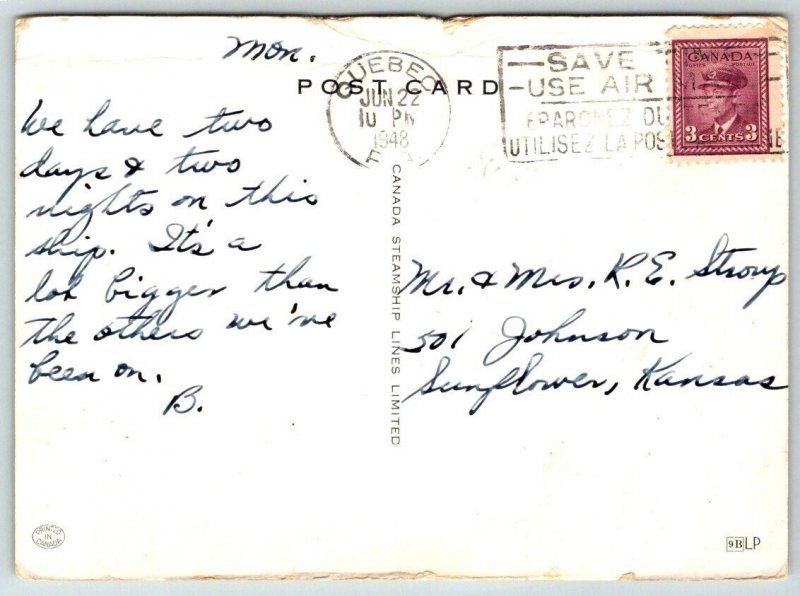 Mon.
POST CARD
QUEBEC
JUN 22
10 PM
1948
SAVE
USE AIR
EPARGNEZ DU
UTILISEZ LA POS
CANADA
POSTES POSTAGE
3 CENTS 3
We have two
days & two
nights on this
ship. It's a
lot bigger than
the others we've
been on.
B.
CANADA STEAMSHIP LINES LIMITED
Mr. & Mrs. R. E. Stroup
501 Johnson
Sunflower, Kansas
PRINTED
IN
CANADA
9B LP